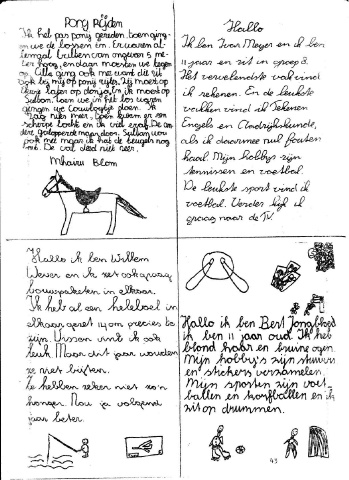 Pony Rijden
Ik heb pas pony gereden. toen ging-
en we de lossen in. Er waren al-
lemaal bulten van ongeveer 5 me-
ter hoog, en daar moesten we tegen
op. Alle ging ook mee want dit zit
ook bij mij op pony rijles. Zij moest op
en ik moest op
Sultan. toen we in het bos waren
gingen we
niet meer. toen kwam er een
scherpe bocht en ik viel eraf. De an-
dere galopperde maar door. Sultan wou
ook met maar ik had de teugels nog
vast. De val deed niet zeer.
Mhairu Blom
Hallo
Ik ben Ivar Meyer en ik ben
11 jaar en zit in groep 8.
Het vervelendste vak vind
ik rekenen. En de leukste
vakken vind ik Tekenen
Engels en Aardrijkskunde,
als ik daarmee nul fouten
haal. Mijn hobbys zijn
tennissen en voetbal.
De leukste sport vind ik
voetbal. Verder kijk ik
graag naar de TV.
Hallo ik ben Willem
Wever en ik zet ook graag
bouwpaketen in elkaar.
Ik heb al een heleboel in
elkaar gezet 14 om precies te
zijn. Vissen vint ik ook
leuk. Maar dit jaar wouden
ze niet bijten.
Ze hebben zeker niet zo'n
honger. Nou ja volgend
jaar beter.
Hallo ik ben Bert
ik ben 11 jaar oud. Ik heb
blond haar en bruine ogen.
Mijn hobby's zijn
en stickers verzamelen.
Mijn sporten zijn voet-
ballen en korfballen en ik
zit op drummen.
43